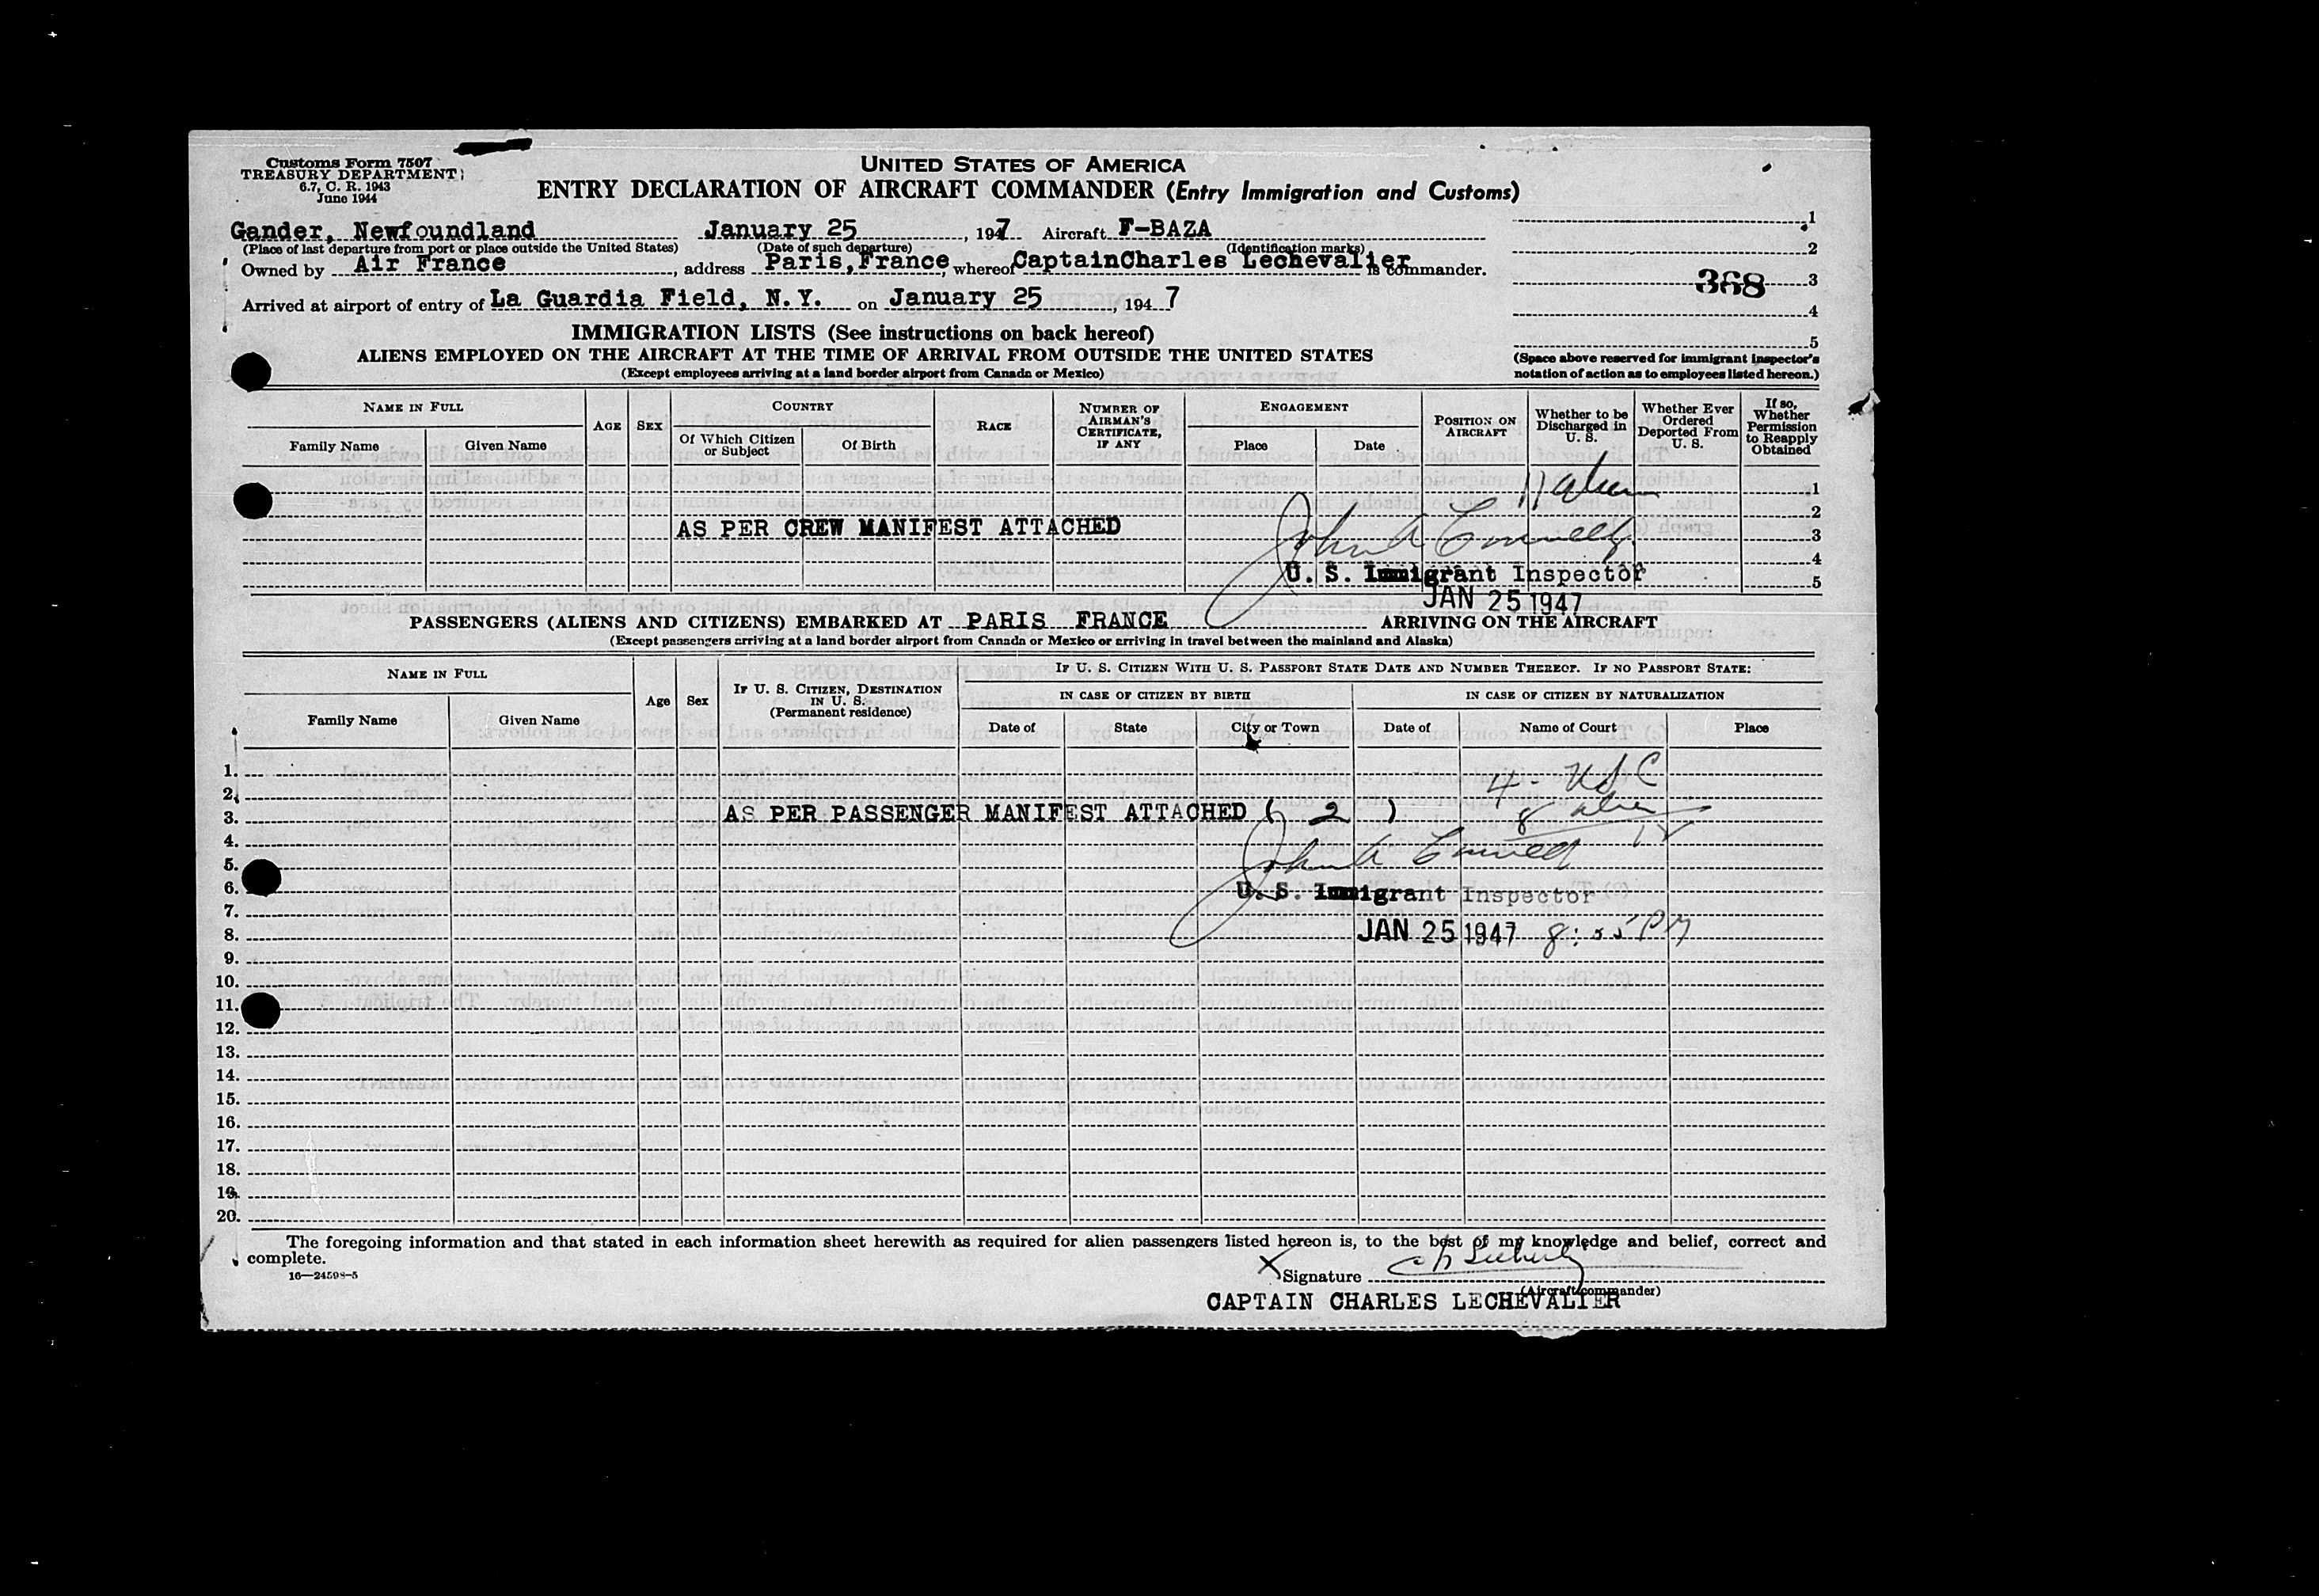 Customs Form 7507
TREASURY DEPARTMENT
6.7, C. R. 1943
June 1944
UNITED STATES OF AMERICA
ENTRY DECLARATION OF AIRCRAFT COMMANDER (Entry Immigration and Customs)
Gander, Newfoundland January 25, 1947 Aircraft F-BAZA
(Place of last departure from port or place outside the United States) (Date of such departure) (Identification marks)
Owned by Air France, address Paris, France, whereof Captain Charles Lechevalier is commander.
Arrived at airport of entry of La Guardia Field, N.Y. on January 25, 1947
1
2
368 3
4
5
(Space above reserved for immigrant inspector's
notation of action as to employees listed hereon.)
IMMIGRATION LISTS (See instructions on back hereof)
ALIENS EMPLOYED ON THE AIRCRAFT AT THE TIME OF ARRIVAL FROM OUTSIDE THE UNITED STATES
(Except employees arriving at a land border airport from Canada or Mexico)
NAME IN FULL
Family Name Given Name
AGE SEX
COUNTRY
Of Which Citizen or Subject Of Birth
RACE
NUMBER OF AIRMAN'S CERTIFICATE, IF ANY
ENGAGEMENT
Place Date
POSITION ON AIRCRAFT
Whether to be Discharged in U. S.
Whether Ever Ordered Deported From U. S.
If so, Whether Permission to Reapply Obtained
1
2
AS PER CREW MANIFEST ATTACHED 3
4
U. S. Immigrant Inspector
5
JAN 25 1947
PASSENGERS (ALIENS AND CITIZENS) EMBARKED AT PARIS FRANCE ARRIVING ON THE AIRCRAFT
(Except passengers arriving at a land border airport from Canada or Mexico or arriving in travel between the mainland and Alaska)
NAME IN FULL
Family Name Given Name
Age Sex
IF U. S. CITIZEN, DESTINATION IN U. S. (Permanent residence)
IF U. S. CITIZEN WITH U. S. PASSPORT STATE DATE AND NUMBER THEREOF. IF NO PASSPORT STATE:
IN CASE OF CITIZEN BY BIRTH
Date of State City or Town
IN CASE OF CITIZEN BY NATURALIZATION
Date of Name of Court Place
1.
4 - USC
2.
8 alien
3. AS PER PASSENGER MANIFEST ATTACHED ( 2 )
12
4.
5.
6. U. S. Immigrant Inspector
7.
8. JAN 25 1947 8:55 PM
9.
10.
11.
12.
13.
14.
15.
16.
17.
18.
19.
20.
The foregoing information and that stated in each information sheet herewith as required for alien passengers listed hereon is, to the best of my knowledge and belief, correct and
complete.
16—24598-5
X Signature
(Aircraft commander)
CAPTAIN CHARLES LECHEVALIER